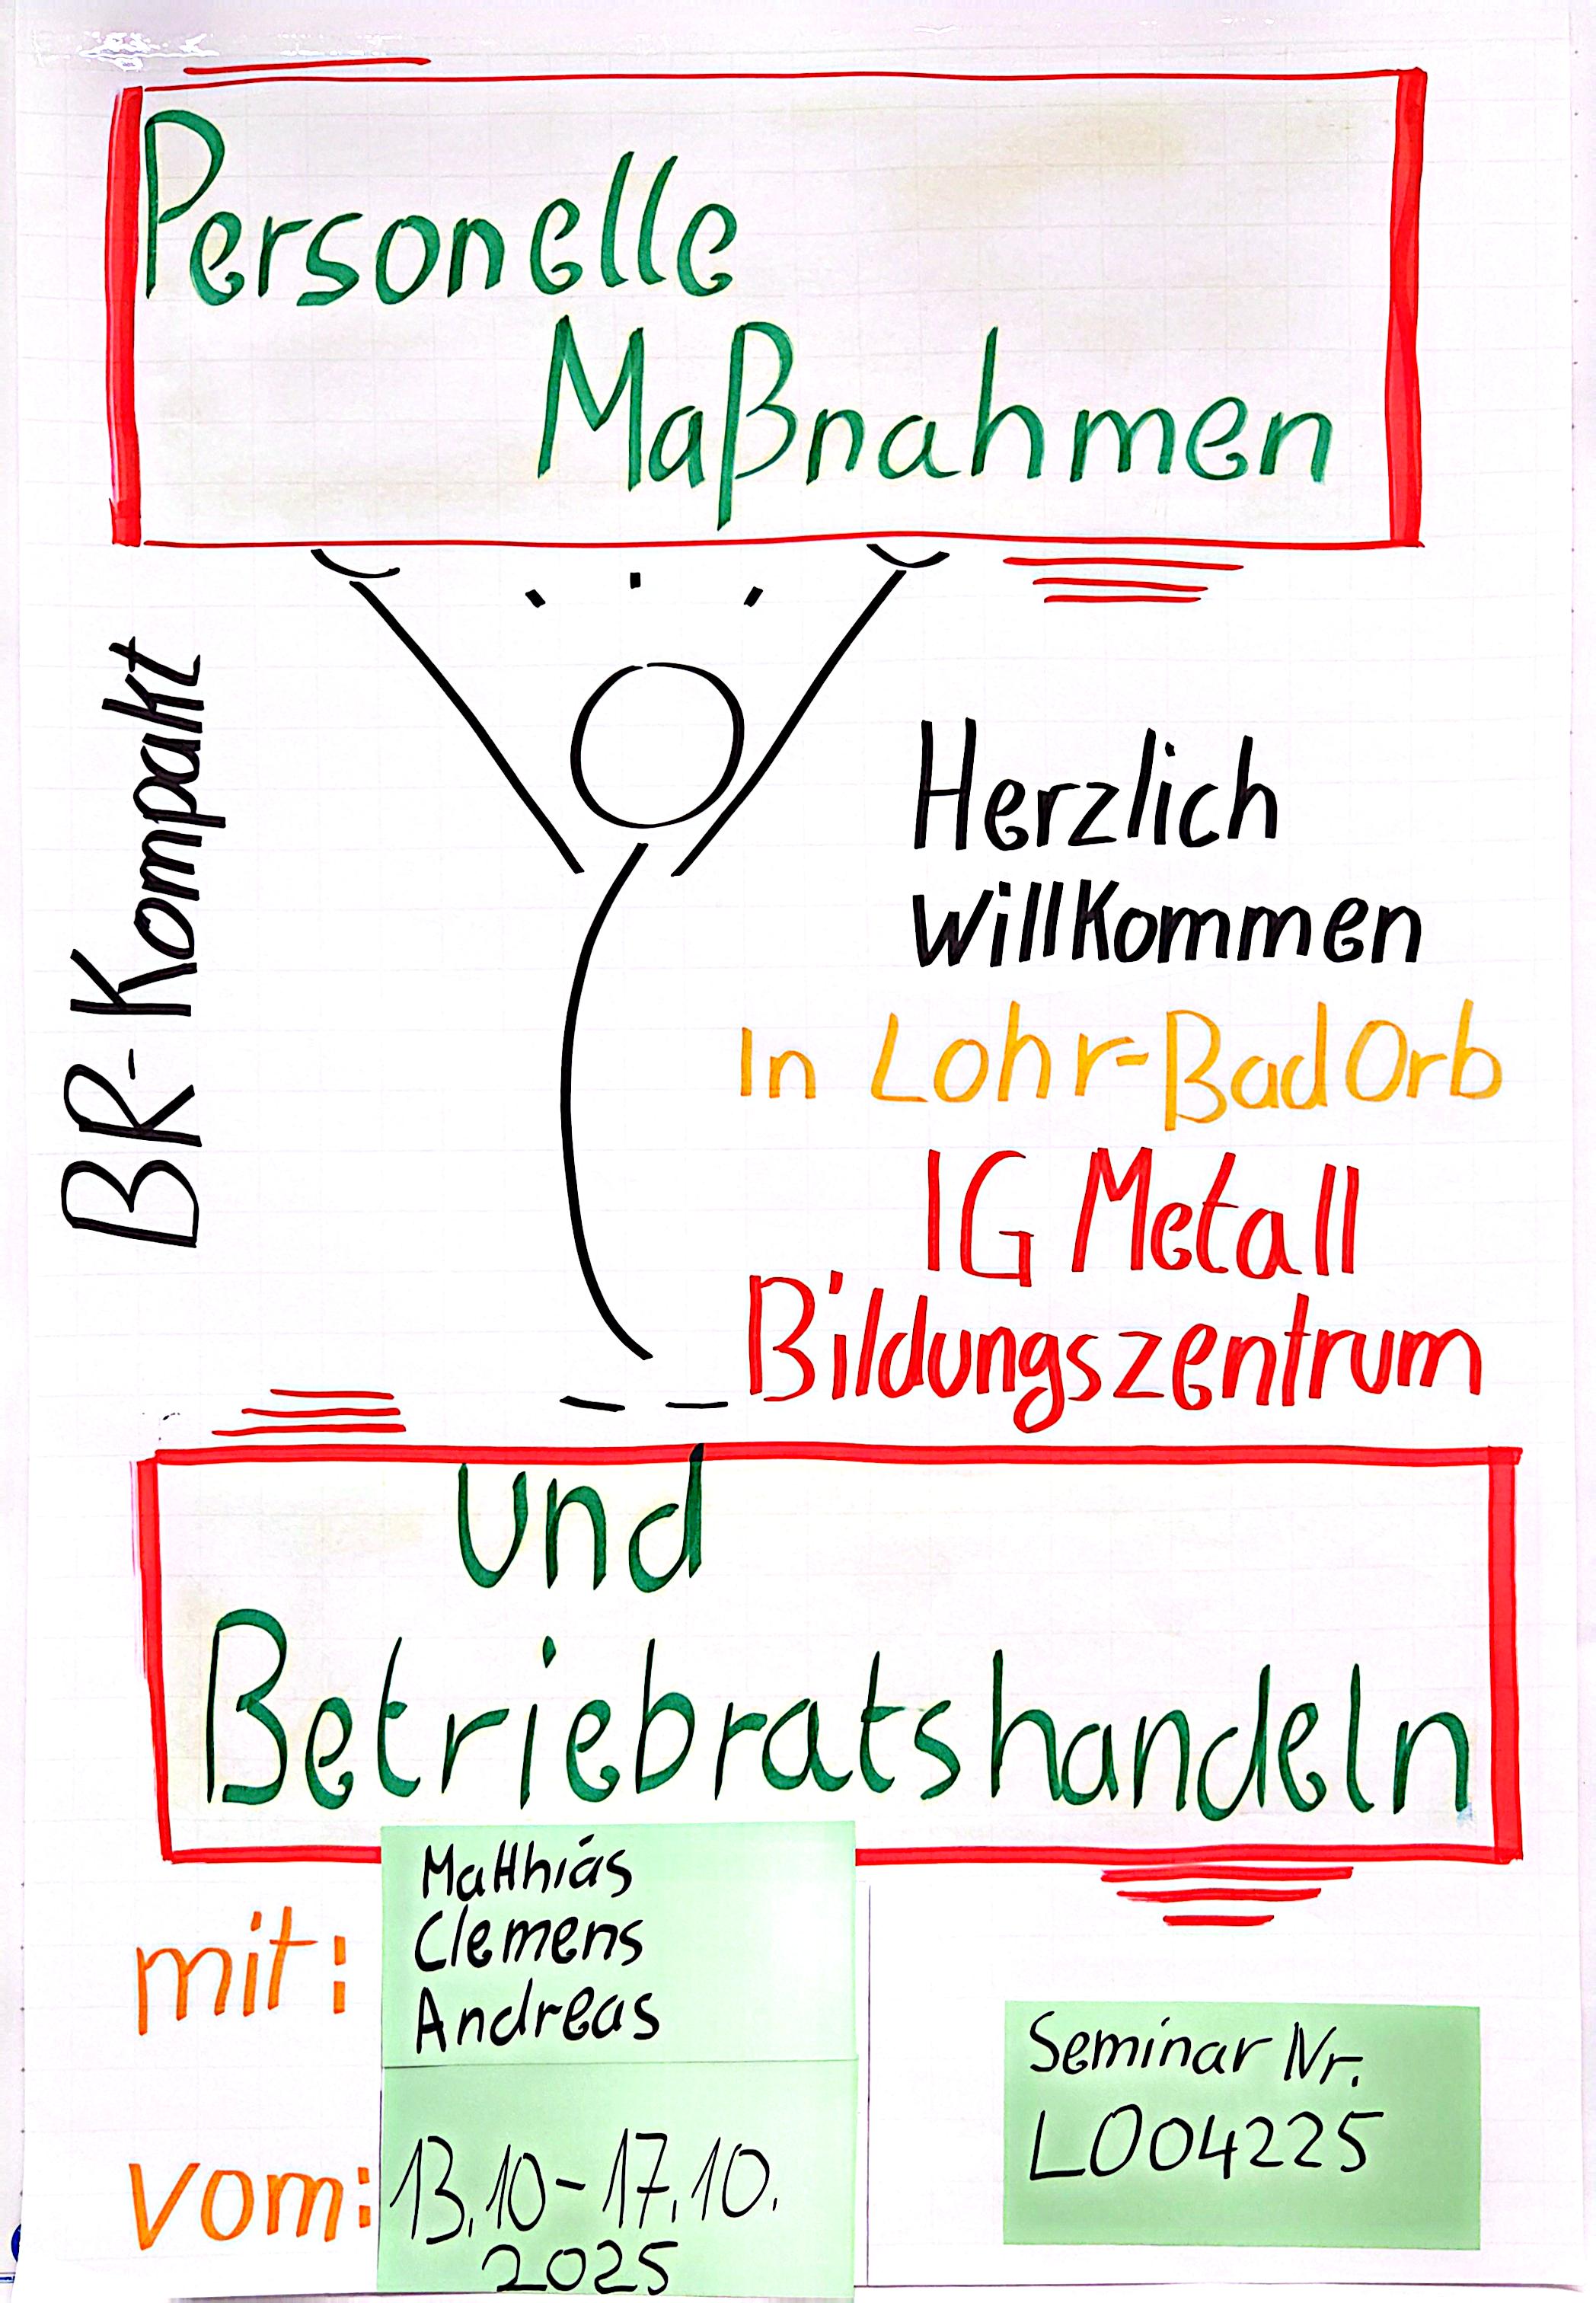 Personelle
Maßnahmen
BR-Kompakt
Herzlich
Willkommen
In Lohr-Bad Orb
IG Metall
Bildungszentrum
und
Betriebratshandeln
mit:
Matthias
Clemens
Andreas
vom:
13.10-17.10.
2025
Seminar Nr.
L004225